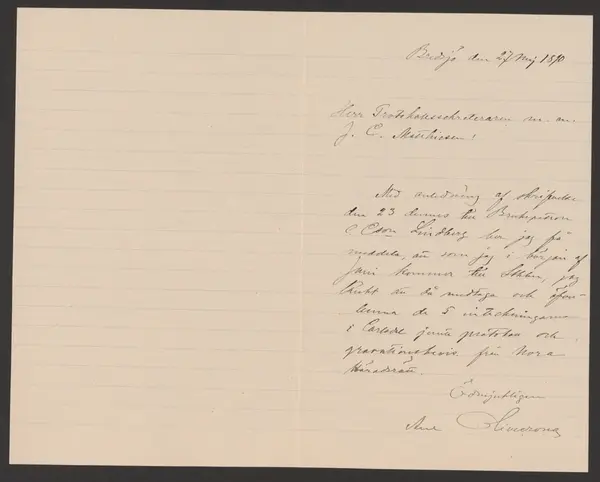 Bredsjö den 27 Maj 1890
Herr Protokollssekreteraren m. m.
J. C. Matthiesen!
Med anledning af skrifvelse
den 23 dennes till Brukspatron
C Cson Lindberg ber jag få
meddela, att som jag i början af
Juni kommer till Sthlm, jag
då mottaga och
lemna de 5 inteckningarne
i Carlsdal jemte protokoll och
gravationsbevis från Nora
Häradsrätt.
Ödmjukligen